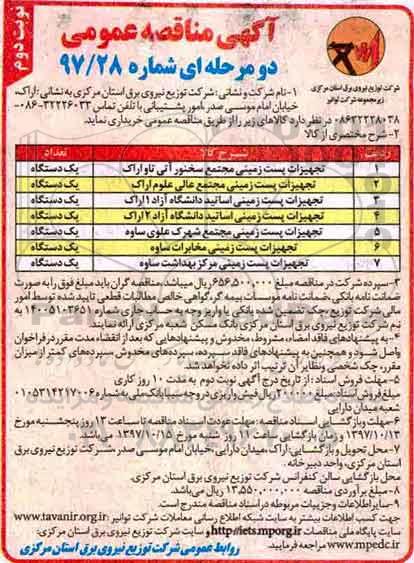 نوبت دوم
آگهی مناقصه عمومی
دو مرحله ای شماره ۹۷/۲۸
شرکت توزیع نیروی برق استان مرکزی
زیرمجموعه شرکت توانیر
۱-نام شرکت و نشانی: شرکت توزیع نیروی برق استان مرکزی به نشانی: اراک،
خیابان امام موسی صدر، امور پشتیبانی با تلفن تماس ۳۲۲۲۶۰۳۳-۰۸۶
۰۸۶۳۲۲۲۸۰۳۸ در نظر دارد کالاهای زیر را از طریق مناقصه عمومی خریداری نماید.
۲- شرح مختصری از کالا
ردیف شرح کالا تعداد
۱ تجهیزات پست زمینی مجتمع سخنور آتی تاو اراک یک دستگاه
۲ تجهیزات پست زمینی مجتمع عالی علوم اراک یک دستگاه
۳ تجهیزات پست زمینی اساتید دانشگاه آزاد ۱ اراک یک دستگاه
۴ تجهیزات پست زمینی اساتید دانشگاه آزاد ۲ اراک یک دستگاه
۵ تجهیزات پست زمینی مجتمع شهرک علوی ساوه یک دستگاه
۶ تجهیزات پست زمینی مخابرات ساوه یک دستگاه
۷ تجهیزات پست زمینی مرکز بهداشت ساوه یک دستگاه
۳-سپرده شرکت در مناقصه مبلغ ۶۵۶,۵۰۰,۰۰۰ ریال میباشد، مناقصه گران باید مبلغ فوق را به صورت
ضمانت نامه بانکی، ضمانت نامه موسسات بیمه گر، گواهی خالص مطالبات قطعی تایید شده توسط امور
مالی شرکت توزیع، چک تضمین شده بانکی یا واریز وجه به حساب جاری شماره ۱۴۰۰۵۱۰۳۶۵۱ به
نام شرکت توزیع نیروی برق استان مرکزی بانک مسکن شعبه مرکزی ارائه نمایند.
۴-به پیشنهادهای فاقد امضاء، مشروط، مخدوش و پیشنهادهایی که بعد از انقضاء مدت مقرر در فراخوان
واصل شود و همچنین به پیشنهادهای فاقد سپرده، سپرده‌های مخدوش، سپرده‌های کمتر از میزان
مقرر، چک شخصی و نظایر آن ترتیب اثر داده نخواهد شد.
۵-مهلت فروش اسناد: از تاریخ درج آگهی نوبت دوم به مدت ۱۰ روز کاری
مبلغ فروش اسناد مبلغ ۲۰۰,۰۰۰ ریال فیش واریزی در وجه سیبا بانک ملی به شماره ۰۱۰۵۳۱۴۲۱۷۰۰۶
شعبه میدان دارایی
۶-مهلت و بازگشایی اسناد مناقصه: مهلت عودت اسناد مناقصه تا ساعت ۱۳ روز پنجشنبه مورخ
۱۳۹۷/۱۰/۱۳ و زمان بازگشایی ساعت ۱۲ روز شنبه مورخ ۱۳۹۷/۱۰/۱۵ می باشد.
۷-محل تحویل و بازگشایی: اراک، میدان دارایی، خیابان امام موسی صدر، شرکت توزیع نیروی برق
استان مرکزی، واحد دبیرخانه.
محل بازگشایی سالن کنفرانس شرکت توزیع نیروی برق استان مرکزی.
۸-مبلغ برآوردی مناقصه ۱۳,۵۵۰,۰۰۰,۰۰۰ ریال می‌باشد.
۹-سایر اطلاعات و جزییات مربوطه در اسناد مناقصه مندرج است.
جهت کسب اطلاعات بیشتر به سایت شبکه اطلاع رسانی معاملات شرکت توانیر www.tavanir.org.ir
سایت پایگاه ملی مناقصات http://iets.mporg.ir و سایت شرکت توزیع نیروی برق استان مرکزی
www.mpedc.ir مراجعه فرمایید.
روابط عمومی شرکت توزیع نیروی برق استان مرکزی